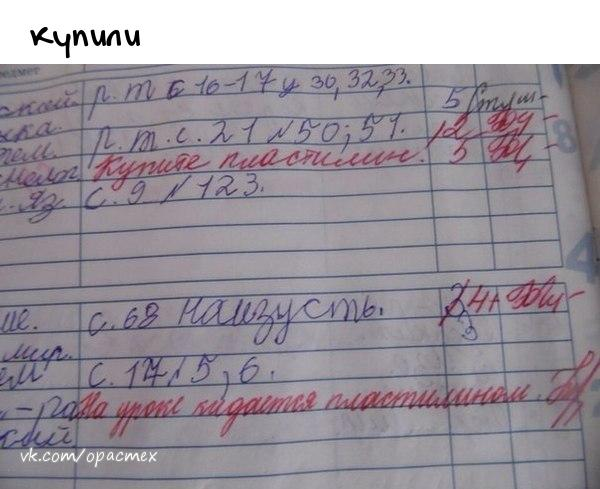 купили
предмет
р. т с 16-17 у 30, 32, 33.
5
р. т. с. 21 № 50; 51.
Купите пластилин.
5
с. 9 № 123.
с. 68 наизусть.
4+
3
мир.
с. 17 № 5, 6.
На уроке кидается пластилином.
vk.com/opacmex